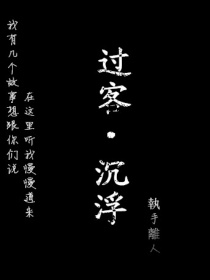 我有几个故事想跟你们说
在这里听我慢慢道来
过客·沉浮
执手離人